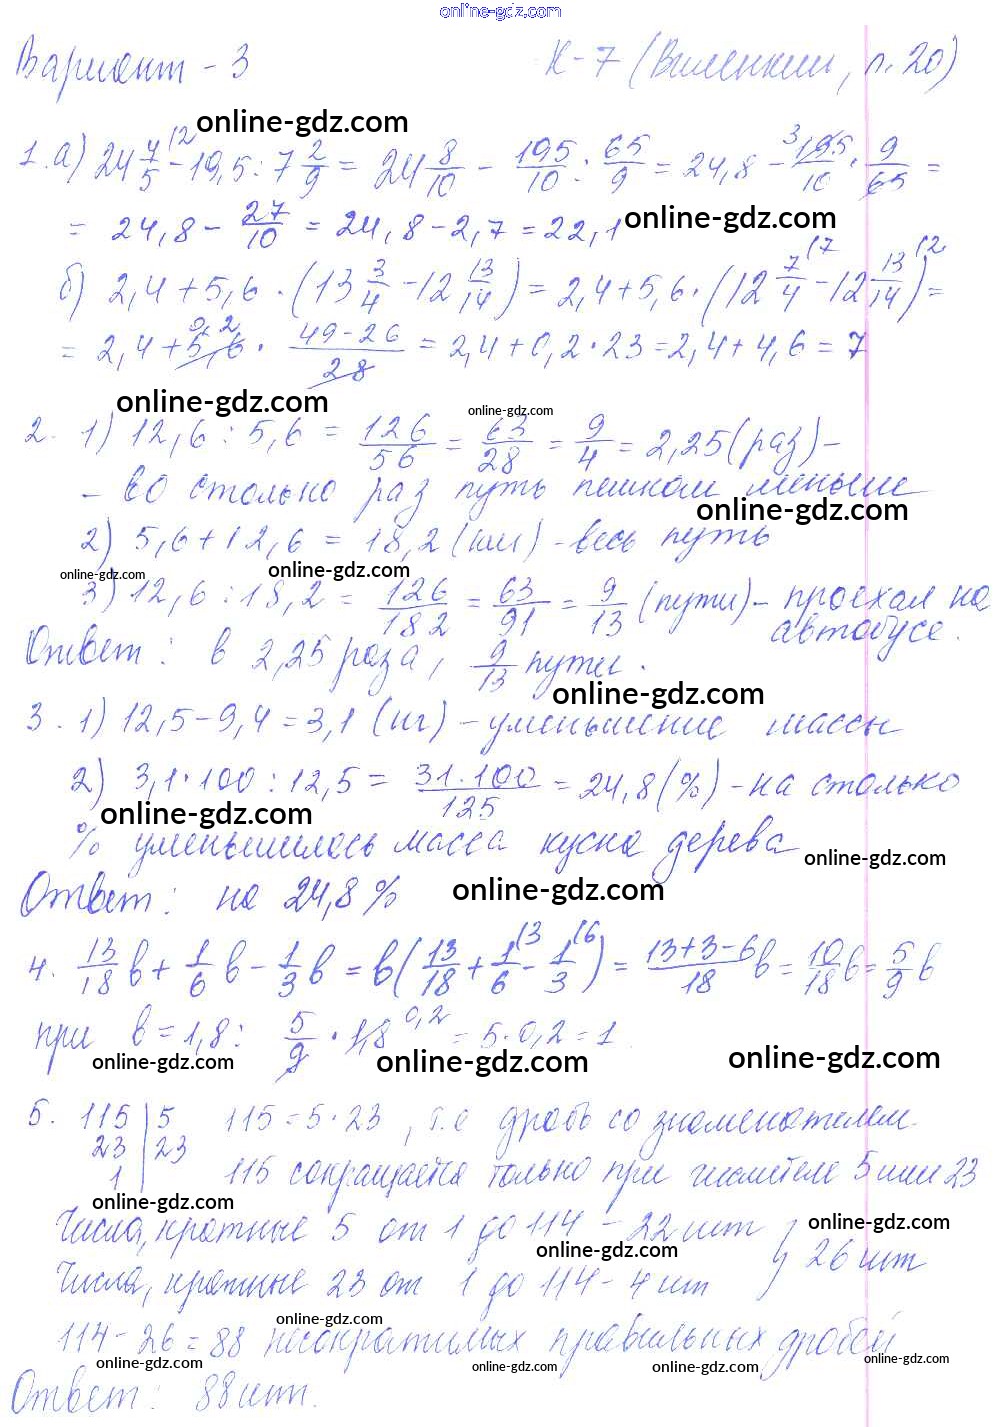 online-gdz.com
Вариант - 3 К-7 (Виленкин, п. 20)
online-gdz.com
1. а) 24 4/5 (2 - 19,5 : 7 2/9 = 24 8/10 - 195/10 : 65/9 = 24,8 - 3 195/10 · 9/65 =
= 24,8 - 27/10 = 24,8 - 2,7 = 22,1
online-gdz.com
б) 2,4 + 5,6 · (13 3/4 - 12 13/14) = 2,4 + 5,6 · (12 7/4 (7 - 12 13/14 (2) =
= 2,4 + 0,2 5,6 · 49-26/28 = 2,4 + 0,2 · 23 = 2,4 + 4,6 = 7
online-gdz.com online-gdz.com
2. 1) 12,6 : 5,6 = 126/56 = 63/28 = 9/4 = 2,25 (раз) -
- во столько раз путь пешком меньше
online-gdz.com
2) 5,6 + 12,6 = 18,2 (км) - весь путь
online-gdz.com online-gdz.com
3) 12,6 : 18,2 = 126/182 = 63/91 = 9/13 (пути) - проехал на
автобусе.
Ответ: в 2,25 раза, 9/13 пути.
online-gdz.com
3. 1) 12,5 - 9,4 = 3,1 (кг) - уменьшение массы
2) 3,1 · 100 : 12,5 = 31·100/125 = 24,8 (%) - на столько
online-gdz.com
% уменьшилась масса куска дерева
online-gdz.com
Ответ: на 24,8 %
online-gdz.com
4. 13/18 в + 1/6 в - 1/3 в = в (13/18 + 1/6 (3 - 1/3 (6) = 13+3-6/18 в = 10/18 в = 5/9 в
при в = 1,8: 5/9 · 1,8 0,2 = 5 · 0,2 = 1.
online-gdz.com online-gdz.com online-gdz.com
5. 115 | 5 115 = 5 · 23, т.е дробь со знаменателем
23 | 23
1 | 115 сокращается только при числителе 5 или 23
online-gdz.com
Числа, кратные 5 от 1 до 114 - 22 шт
online-gdz.com
online-gdz.com
} 26 шт
Числа, кратные 23 от 1 до 114 - 4 шт
online-gdz.com
114 - 26 = 88 несократимых правильных дробей
online-gdz.com online-gdz.com online-gdz.com online-gdz.com
Ответ: 88 шт.